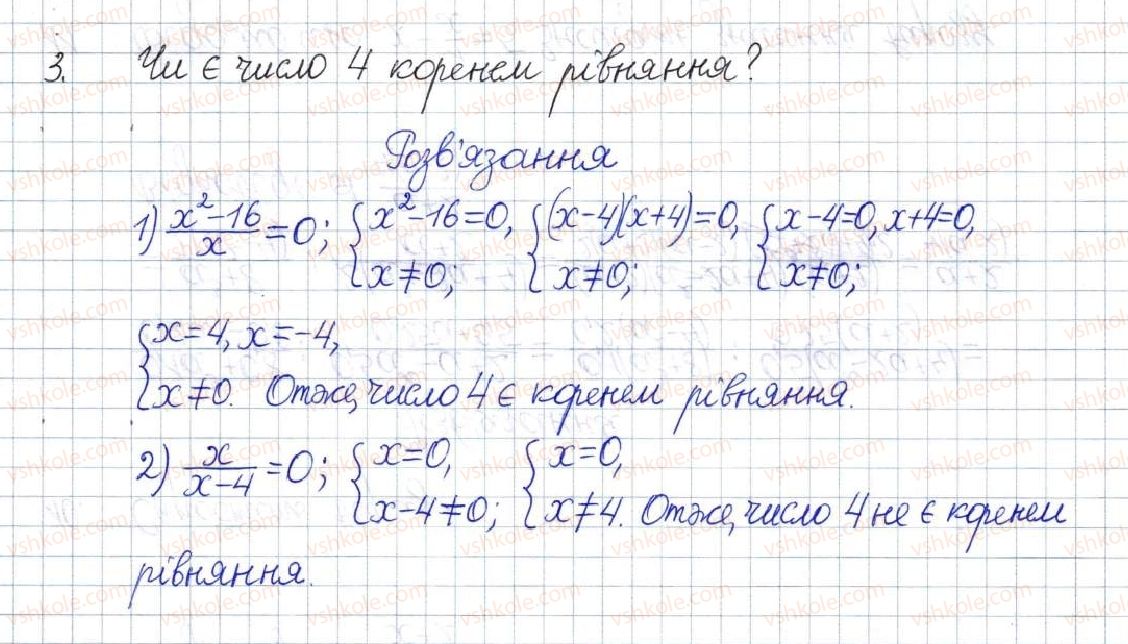 3. Чи є число 4 коренем рівняння?
Розв'язання
1) (x²-16)/x = 0; { x²-16=0, x≠0; { (x-4)(x+4)=0, x≠0; { x-4=0, x+4=0, x≠0;
{ x=4, x=-4,
x≠0. Отже, число 4 є коренем рівняння.
2) x/(x-4) = 0; { x=0, x-4≠0; { x=0, x≠4. Отже, число 4 не є коренем
рівняння.
vshkole.com